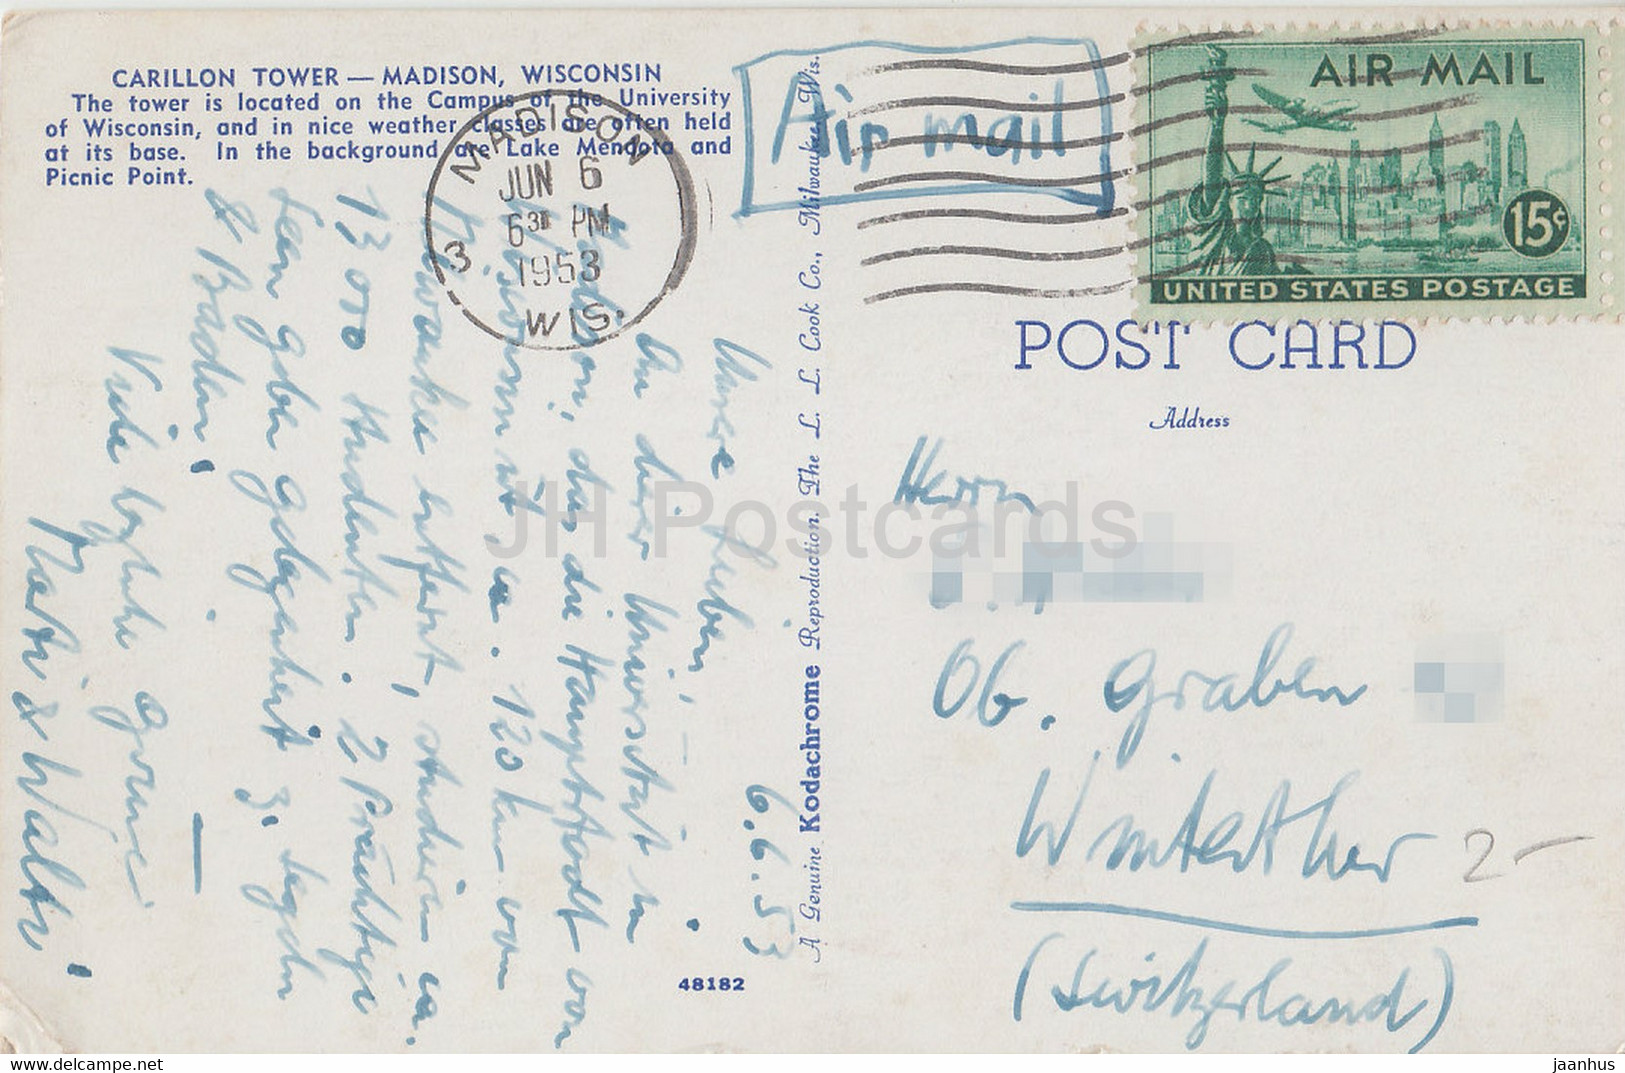 CARILLON TOWER — MADISON, WISCONSIN
The tower is located on the Campus of the University
of Wisconsin, and in nice weather classes are often held
at its base. In the background are Lake Mendota and
Picnic Point.
MADISON
JUN 6
6 30 PM
1953
3 WIS.
Air mail
AIR MAIL
15¢
UNITED STATES POSTAGE
POST CARD
Address
Herrn
Ob. Graben
Winterthur
(Switzerland)
2-
6.6.53
Meine Lieben,
In dieser Universität in
Madison, das die Hauptstadt von
Wisconsin ist, ca. 120 km von
Milwaukee entfernt, studieren ca.
13000 Studenten. 2 prächtige
Seen geben Gelegenheit z. segeln
& Baden!
Viele herzliche Grüsse
& Walti
A Genuine Kodachrome Reproduction. The L. L. Cook Co., Milwaukee, Wis.
48182
JH Postcards
www.delcampe.net
jaanhus